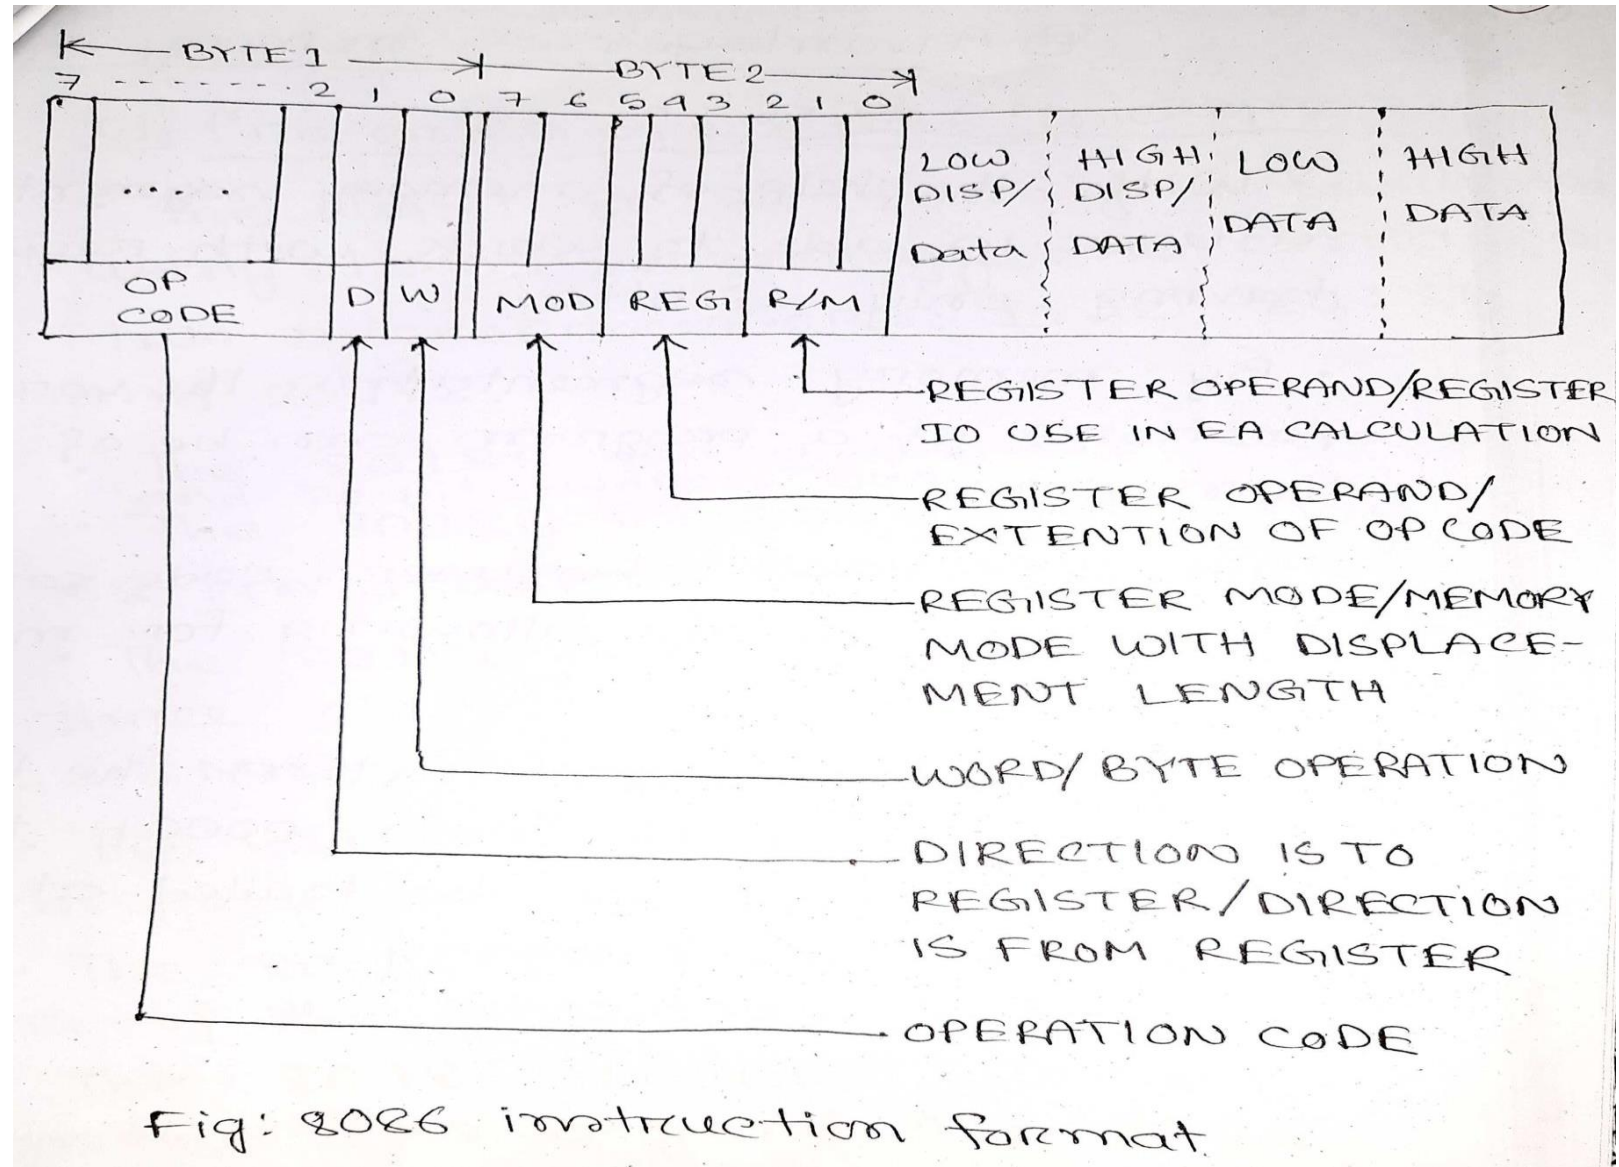 BYTE 1 BYTE 2
7 - - - - - - - - 2 1 0 7 6 5 4 3 2 1 0
... LOW HIGH LOW HIGH
DISP/ DISP/ DATA DATA
Data DATA
OP CODE D W MOD REG R/M
REGISTER OPERAND/REGISTER
TO USE IN EA CALCULATION
REGISTER OPERAND/
EXTENTION OF OP CODE
REGISTER MODE/MEMORY
MODE WITH DISPLACE-
MENT LENGTH
WORD/BYTE OPERATION
DIRECTION IS TO
REGISTER/DIRECTION
IS FROM REGISTER
OPERATION CODE
Fig: 8086 instruction format